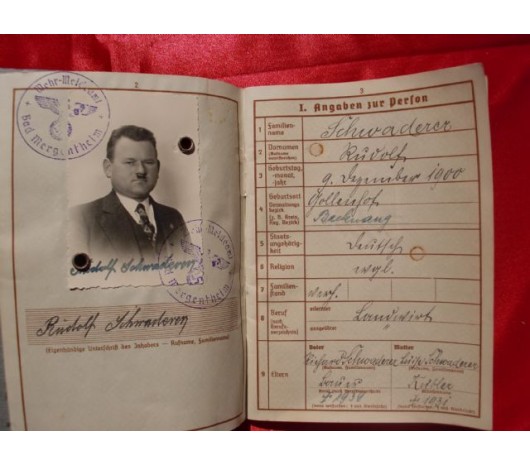 2
Wehr-Meldeamt
Bad Mergentheim
Rudolf Schwaderer
Wehr-Meldeamt
Bad Mergentheim
Rudolf Schwaderer
(Eigenhändige Unterschrift des Inhabers — Rufname, Familienname)
3
I. Angaben zur Person
1 Familien-
name
Schwaderer
2 Vornamen
(Rufname
unterstreichen)
Rudolf
3 Geburtstag,
-monat,
-jahr
9. Dezember 1900
4 Geburtsort
Verwaltungs-
bezirk
(z. B. Kreis,
Reg. Bezirk)
Backnang
5 Staats-
angehörig-
keit
Deutsch
6 Religion
7 Familien-
stand
verh.
8 Beruf
(nach
Berufs-
verzeichnis)
erlernter
ausgeübter
Landwirt
9 Eltern
Vater
Mutter
Schwaderer
Schwaderer
(Rufname, Familienname)
(Rufname, Familienname)